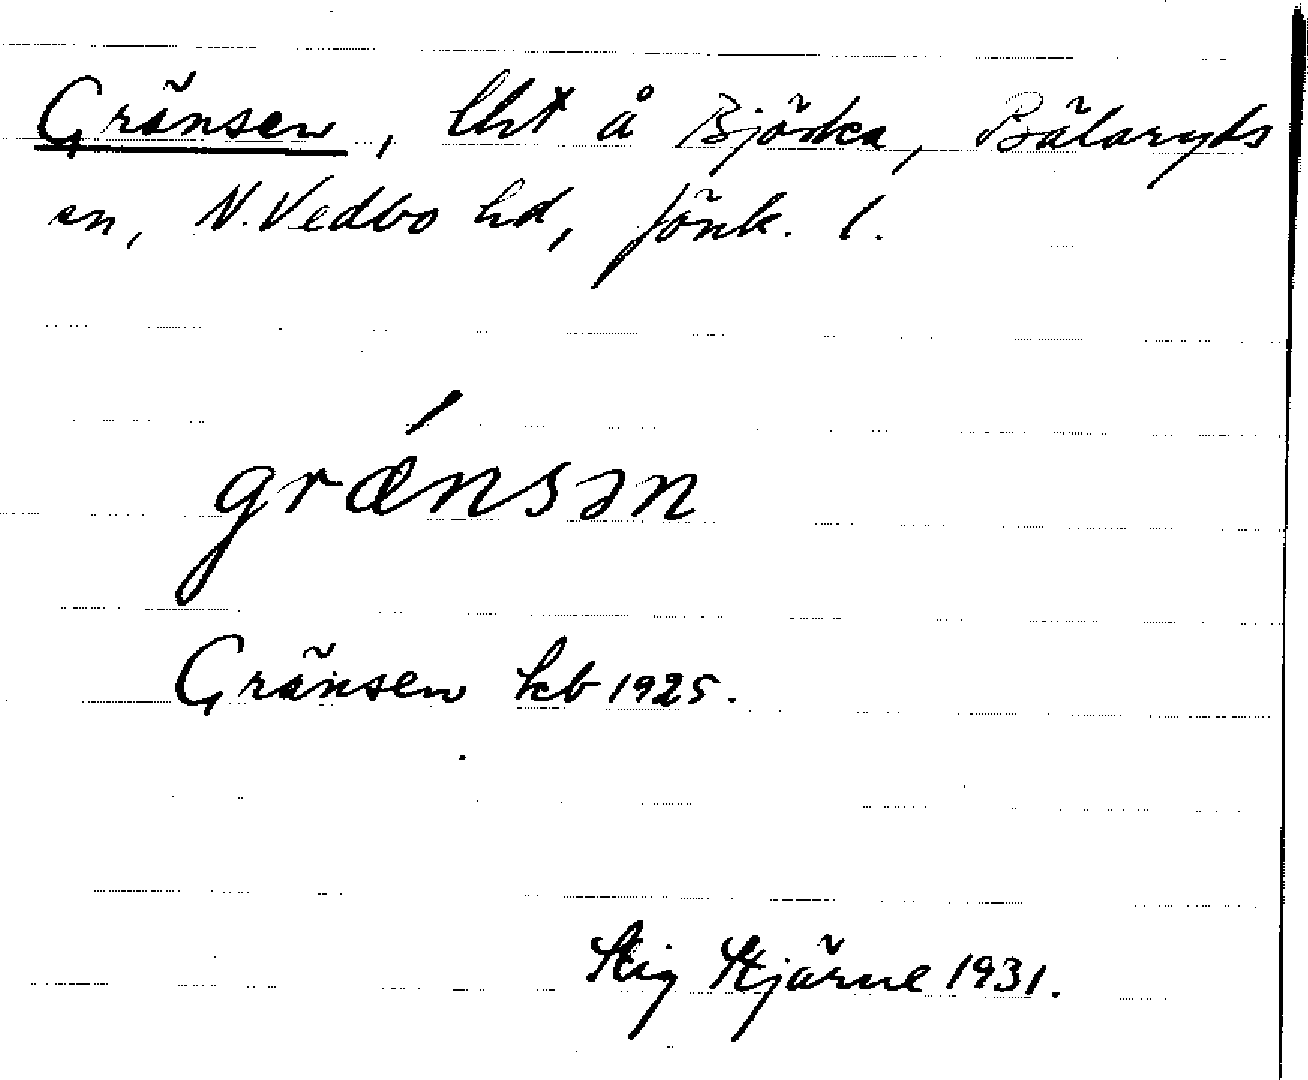 Gränsen, lht å Björka, Bälaryds
sn, N. Vedbo hd, Jönk. l.
grǽnsən
Gränsen kb 1925.
Stig Stjärne 1931.